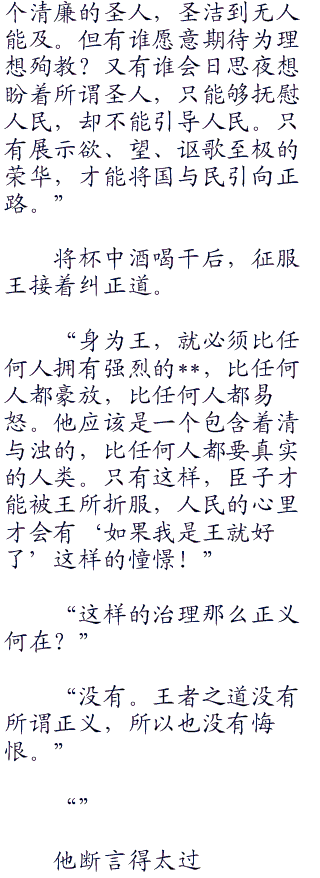 个清廉的圣人，圣洁到无人
能及。但有谁愿意期待为理
想殉教？又有谁会日思夜想
盼着所谓圣人，只能够抚慰
人民，却不能引导人民。只
有展示欲、望、讴歌至极的
荣华，才能将国与民引向正
路。”
将杯中酒喝干后，征服
王接着纠正道。
“身为王，就必须比任
何人拥有强烈的**，比任何
人都豪放，比任何人都易
怒。他应该是一个包含着清
与浊的，比任何人都要真实
的人类。只有这样，臣子才
能被王所折服，人民的心里
才会有‘如果我是王就好
了’这样的憧憬！”
“这样的治理那么正义
何在？”
“没有。王者之道没有
所谓正义，所以也没有悔
恨。”
“”
他断言得太过